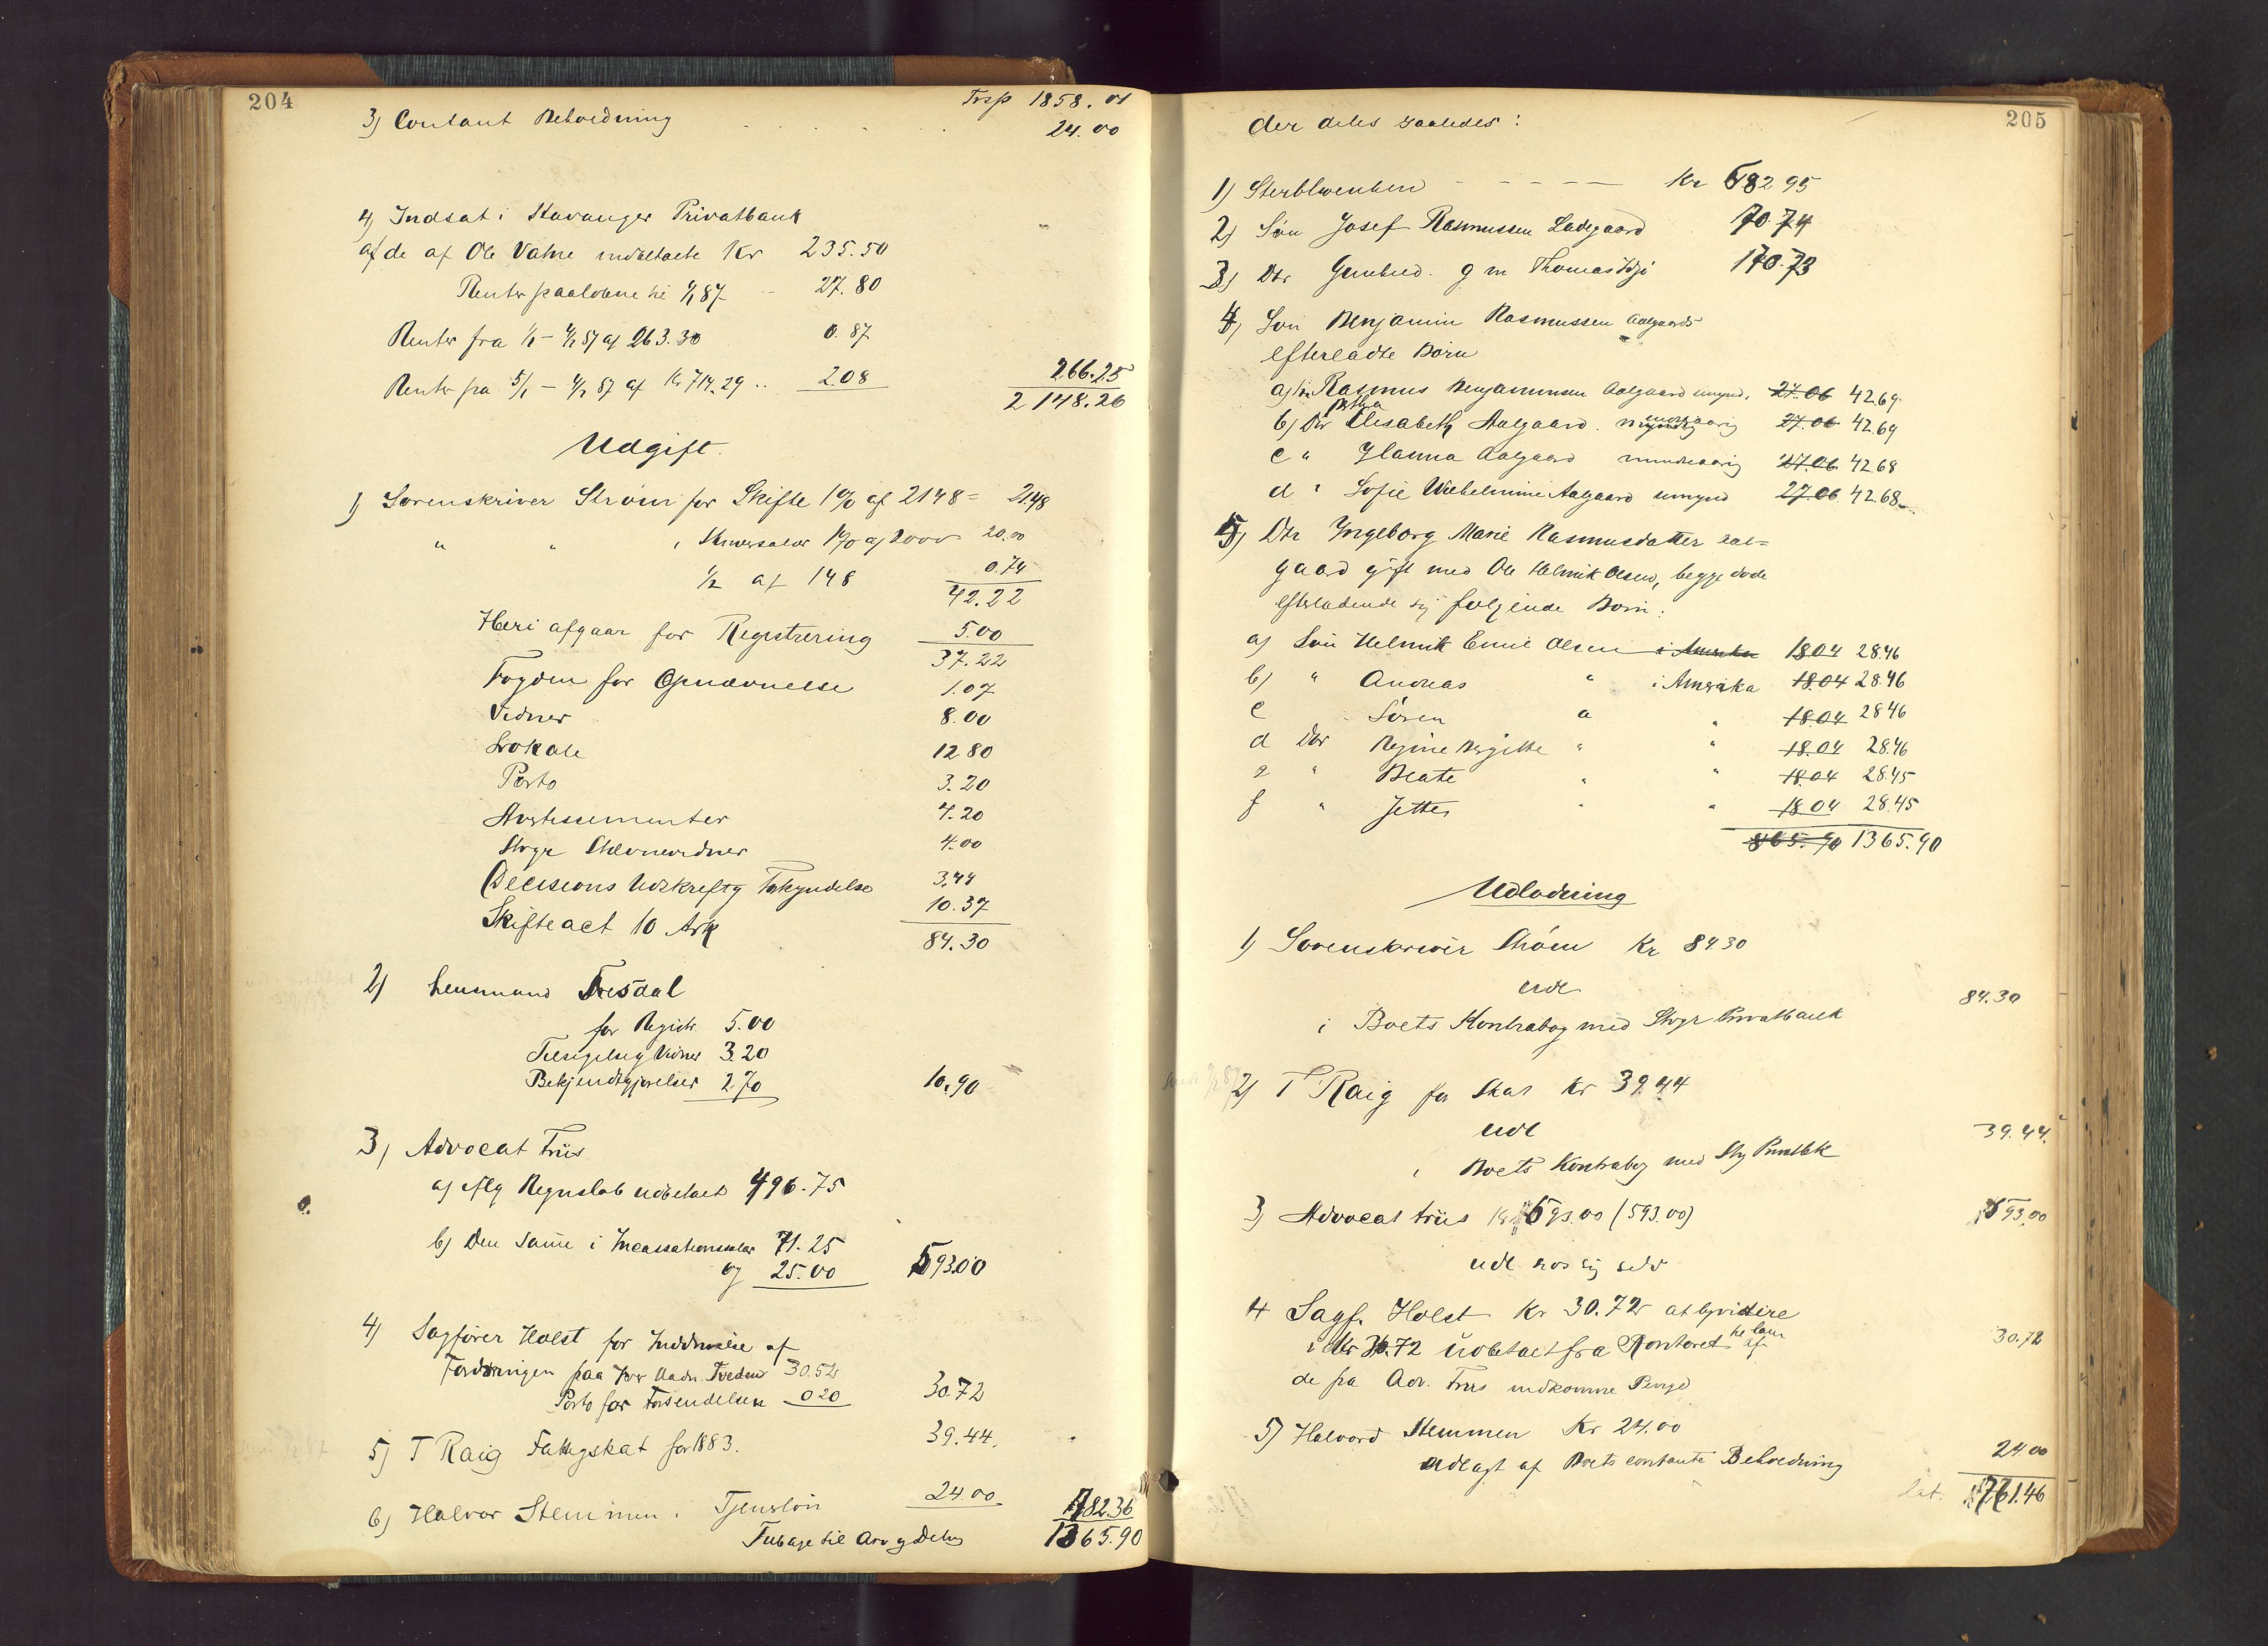 204
Trsp 1858.01
3) Contant Beholdning . . . . 24.00
4) Indsat i Stavanger Privatbank
af de af Ole Vatne indbetalte Kr 235.50
Renter paaløbne til 1/1 87 27.80
Renter fra 1/1 - 4/2 87 af 263.30 0.87
Renter fra 5/1 - 4/2 87 af Kr 714.29 .. 2.08 266.25
2148.26
Udgift.
1) Sorenskriver Strøm for Skifte 1% af 2148 = 21.48
" " " 1% af 2000 20.00
1/2 af 148 0.74
42.22
Heri afgaar for Registrering 5.00
37.22
Fogden for Opnævnelse 1.07
Vidner 8.00
Lokale 12 80
Porto 3.20
Avertissementer 4.20
Stvgr Stævnevidner 4.00
Decisions Udskrift og Forkyndelse 3.44
Skifteact 10 Ark 10.37
84.30
2) Lensmand Tresdal
for Registr. 5.00
Tilsigelse af Vidner 3.20
Bekjendtgjørelser 2.70 10.90
3) Advocat Triis
a) iflg Regnskab udbetalt 496.75
b) Den samme i Incassationssalær 71.25
og 25.00 593.00
4) Sagfører Holst for Inddrivelse af
Fordringen paa Tveden 30.52
Porto for Forsendelsen 0 20 30.72
5) T Raig Fattigskat for 1883. 39.44.
6) Halvor Stemmen i Tjenstløn 24.00 782.36
Tilbage til Arv og Deling 1365.90
205
der deles saaledes:
1) Sterbboenken - - - - - Kr 682 95
2) Søn Josef Rasmussen Ladegaard 170.74
3) Dtr Gunhild. g m Thomas 170.73
4) Søn Benjamin Rasmussen Aalgaards
efterladte Børn
a) Søn Rasmus Benjaminsen Aalgaard umynd. 27.06 42.69
b) Dtr Elisabeth Aalgaard. 27.06 42.69
c " Hanna Aalgaard mindreaarig 27.06 42.68
d " Sofie Wilhelmine Aalgaard umynd 27.06 42.68
5) Dtr Ingeborg Marie Rasmusdatter Aal=
gaard gift med Ole Helmik Olsen, begge døde
efterladende sig følgende Børn:
a) Søn Helmik Emil Olsen i Amerika 18.04 28.46
b) " Andreas " i Amerika 18.04 28.46
c " Søren " " 18.04 28 46
d Dtr Regine Birgitte " " 18.04 28.46
e " Beate " " 18.04 28.45
f " Jette " " 18 04 28.45
865.90 1365.90
Udlodning
1) Sorenskriver Strøm Kr 84.30
udl
i Boets Kontrabog med Stvgr Privatbank 84.30
2) T Raig for Skat Kr 39.44
udl 39.44.
i Boets Kontrabog med Stvg Privatbk
3) Advocat Triis Kr 593.00 (593.00) 593.00
udl hos sig selv
4 Sagf. Holst Kr 30.72 at
i Kr 30.72 udbetalt fra Kontoret af 30.72
de fra Adv. Triis indkomne Penge
5) Halvord Stemmen Kr 24.00
udlagt af Boets contante Beholdning 24.00
Lat. 771.46